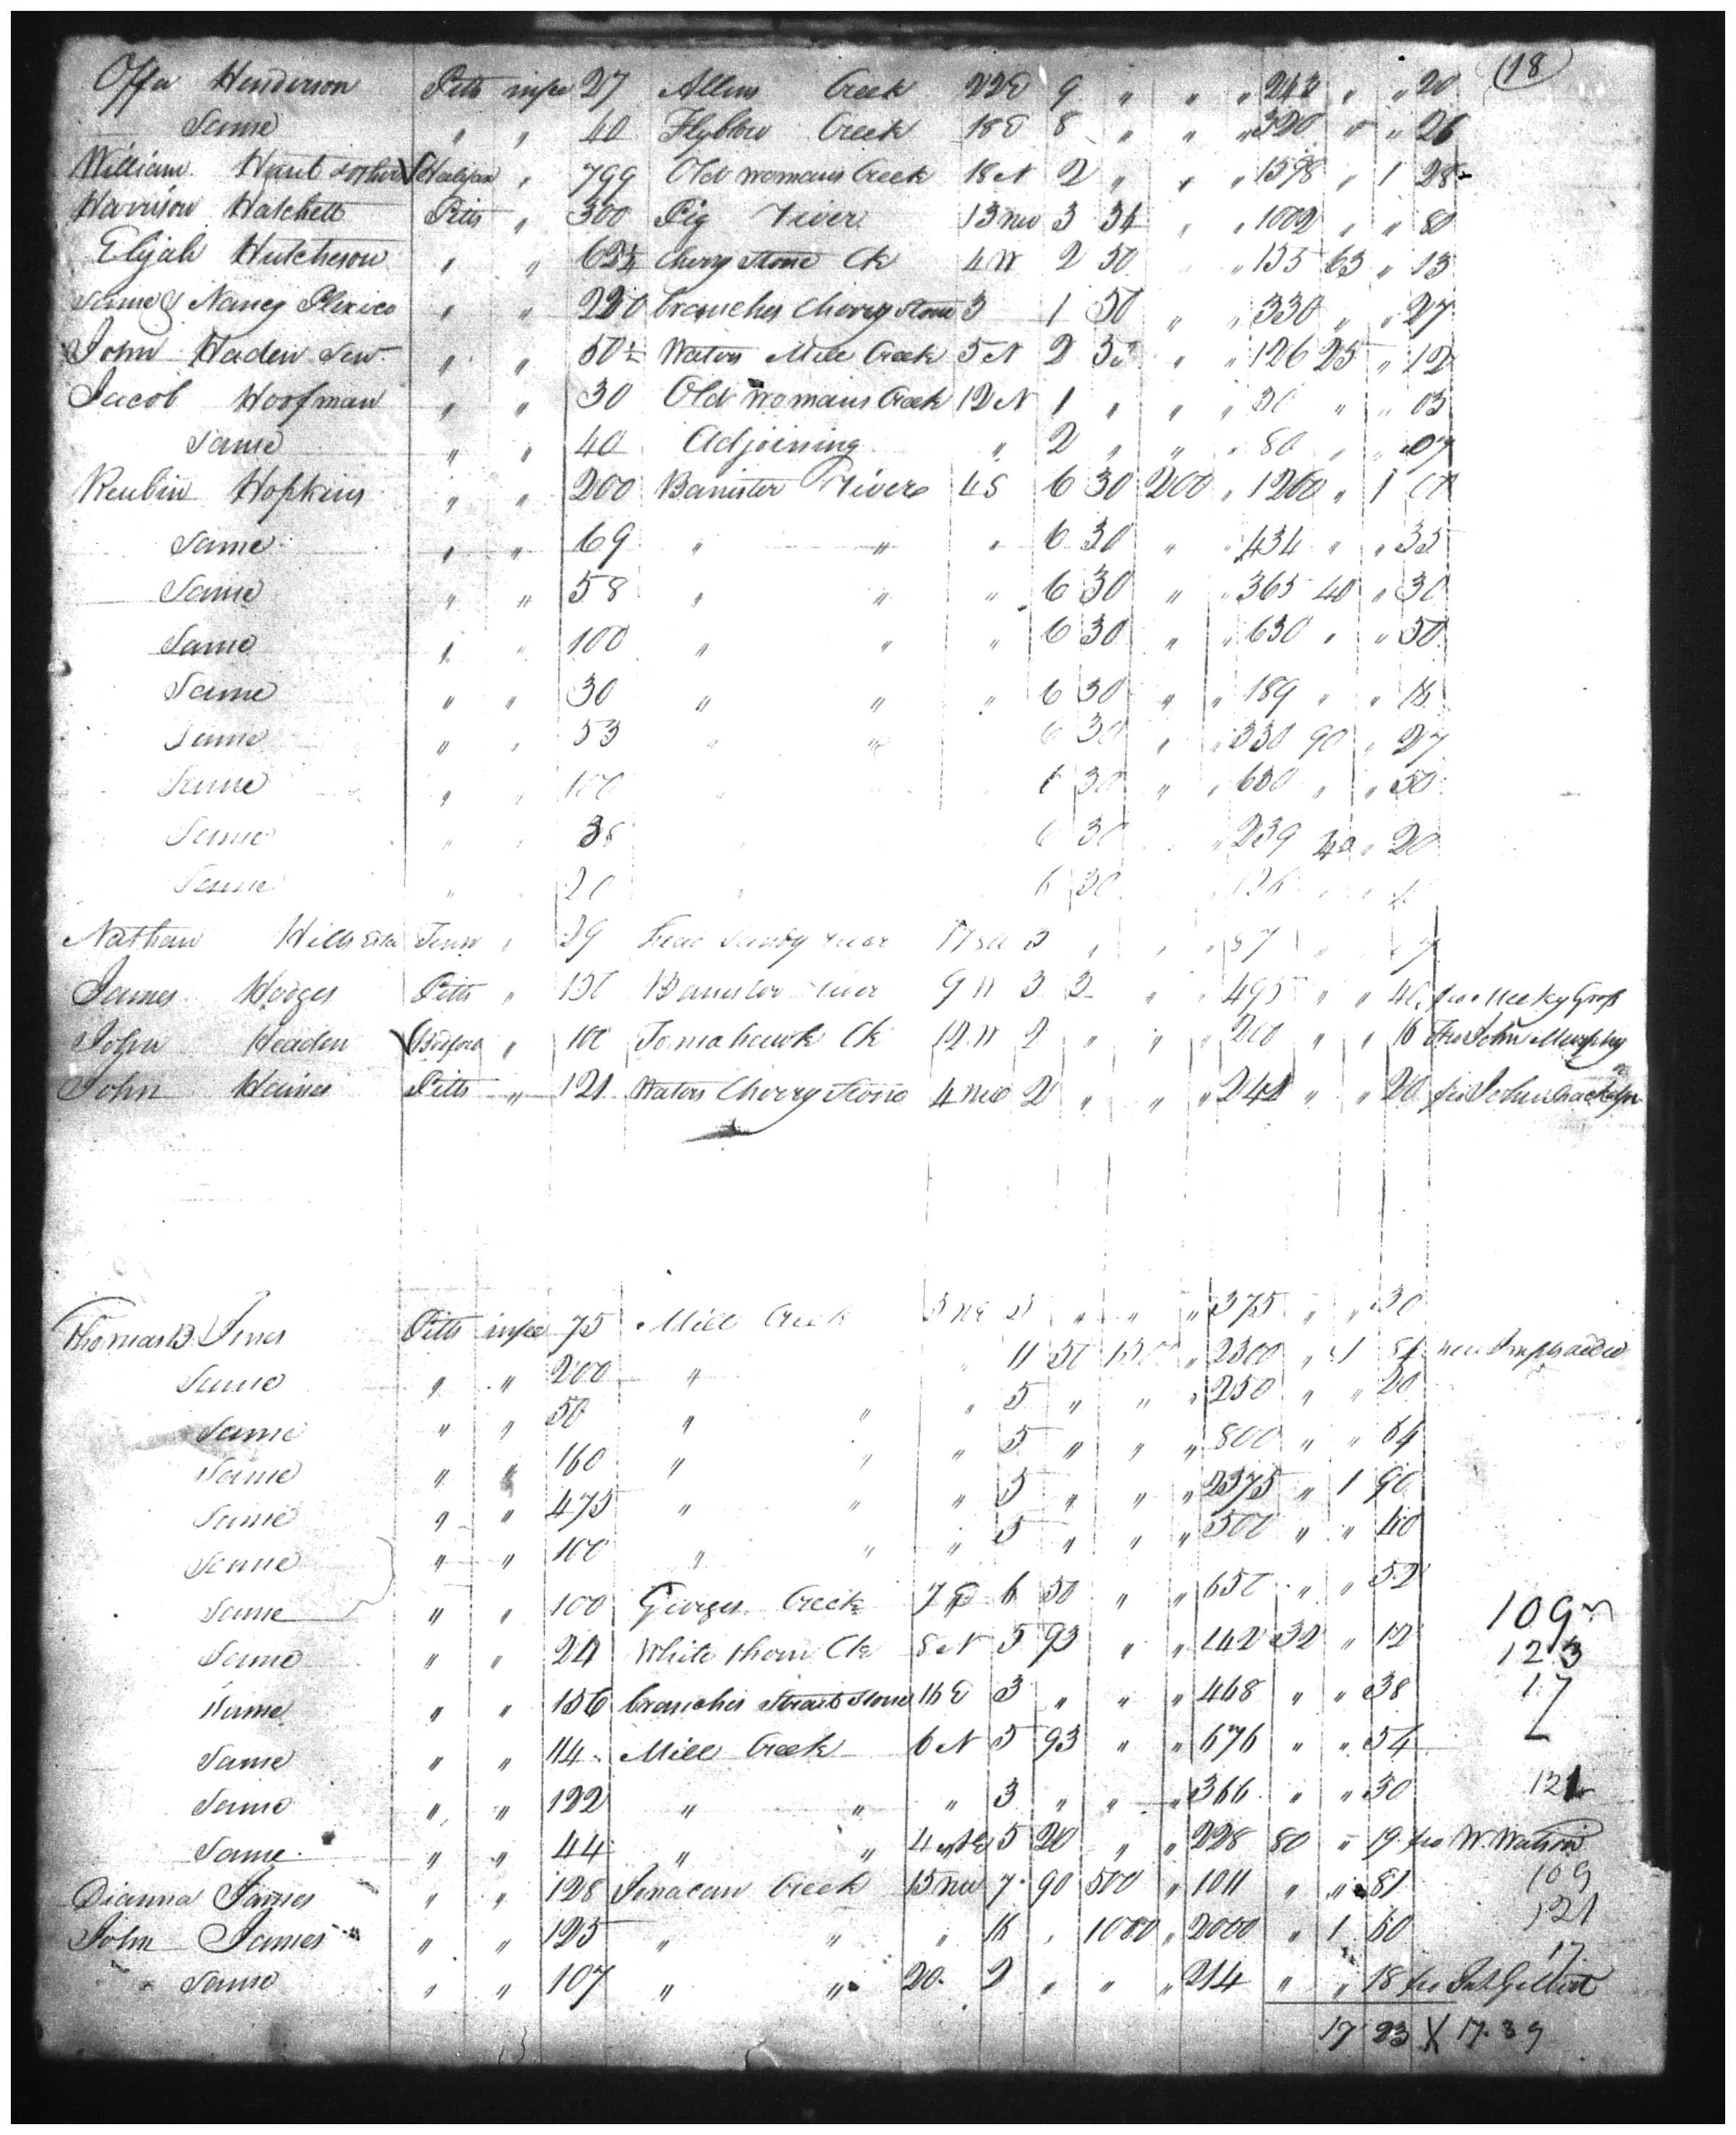 (18)
Offa Henderson Pitts in fee 27 Allens Creek 22 E 9 " " " 243 " " 20
Same " " 40 Flyblow Creek 18 E 8 " " " 320 " " 26
William Hunt & other Halifax " 799 Old Womans Creek 18 N 2 " " " 1598 " 1 28
Harrison Hatchett Pitts " 300 Pig River 13 NW 3 34 " " 1002 " " 80
Elijah Hutcheson " " 62¼ Cherry Stone Ck 4 W 2 50 " " 155 63 " 13
Same & Nancy Plexico " " 220 branches Cherry Stone 3 1 50 " " 330 " " 27
John Haden Sen. " " 50½ Waters Mill Creek 5 N 2 50 " " 126 25 " 12
Jacob Hoofman " " 30 Old Womans Creek 12 N 1 " " " 30 " " 03
Same " " 40 Adjoining " 2 " " " 80 " " 07
Reubin Hopkins " " 200 Banister River 4 S 6 30 200 " 1260 " 1 01
Same " " 69 " " " 6 30 " " 434 " " 35
Same " " 58 " " " 6 30 " " 365 40 " 30
Same " " 100 " " " 6 30 " " 630 " " 50
Same " " 30 " " " 6 30 " " 189 " " 16
Same " " 53 " " 6 30 " " 330 90 " 27
Same " " 100 6 30 " " 630 " " 50
Same " " 38 6 30 " 239 40 " 20
Same " " 20 6 30 126
Nathan Hill Tenn " 29 Sandy River 17 3 " " " 87 " 7
James Hodges Pitts " 150 Banister River 9 W 3 3 " " 495 " " 40
John Headen Bedford " 100 Tomahawk Ck 12 W 2 " " " 200 " " 16 fro John Murphy
John Haines Pitts " 121 Waters Cherry Stone 4 NW 2 " " " 242 " " 20 fro John
Thomas B. Jones Pitts in fee 75 Mill Creek 3 NE 5 " " " 375 " " 30
Same " " 200 " " 11 50 1300 " 2300 " 1 84
Same " " 50 " " " 5 " " " 250 " " 20
Same " " 160 " " " 5 " " " 800 " " 64
Same " " 475 " " " 5 " " " 2375 " 1 90
Same " " 100 " " " 5 " " " 500 " " 40
Same " " 100 Georges Creek 7 E 6 50 " " 650 " " 52
Same " " 24 White thorn Ck 8 N 5 93 " " 142 32 " 12
109
123
17
Same " " 156 branches Straitstone 16 E 3 " " " 468 " " 38
Same " " 114 Mill Creek 6 N 5 93 " " 676 " " 54
Same " " 122 " " " 3 " " " 366 " " 30
Same " " 44 " " 4 NE 5 20 " " 228 80 " 19 fro W. Watson
Dianna James " " 128 Tomacan Creek 15 NW 7 90 500 " 1011 " " 81
109
John James " " 125 " " " 16 " 1000 " 2000 " 1 60
121
17
Same " " 107 " " 20 2 " " " 214 " " 18 fro Jas Gilbert
17 23 X 17.39